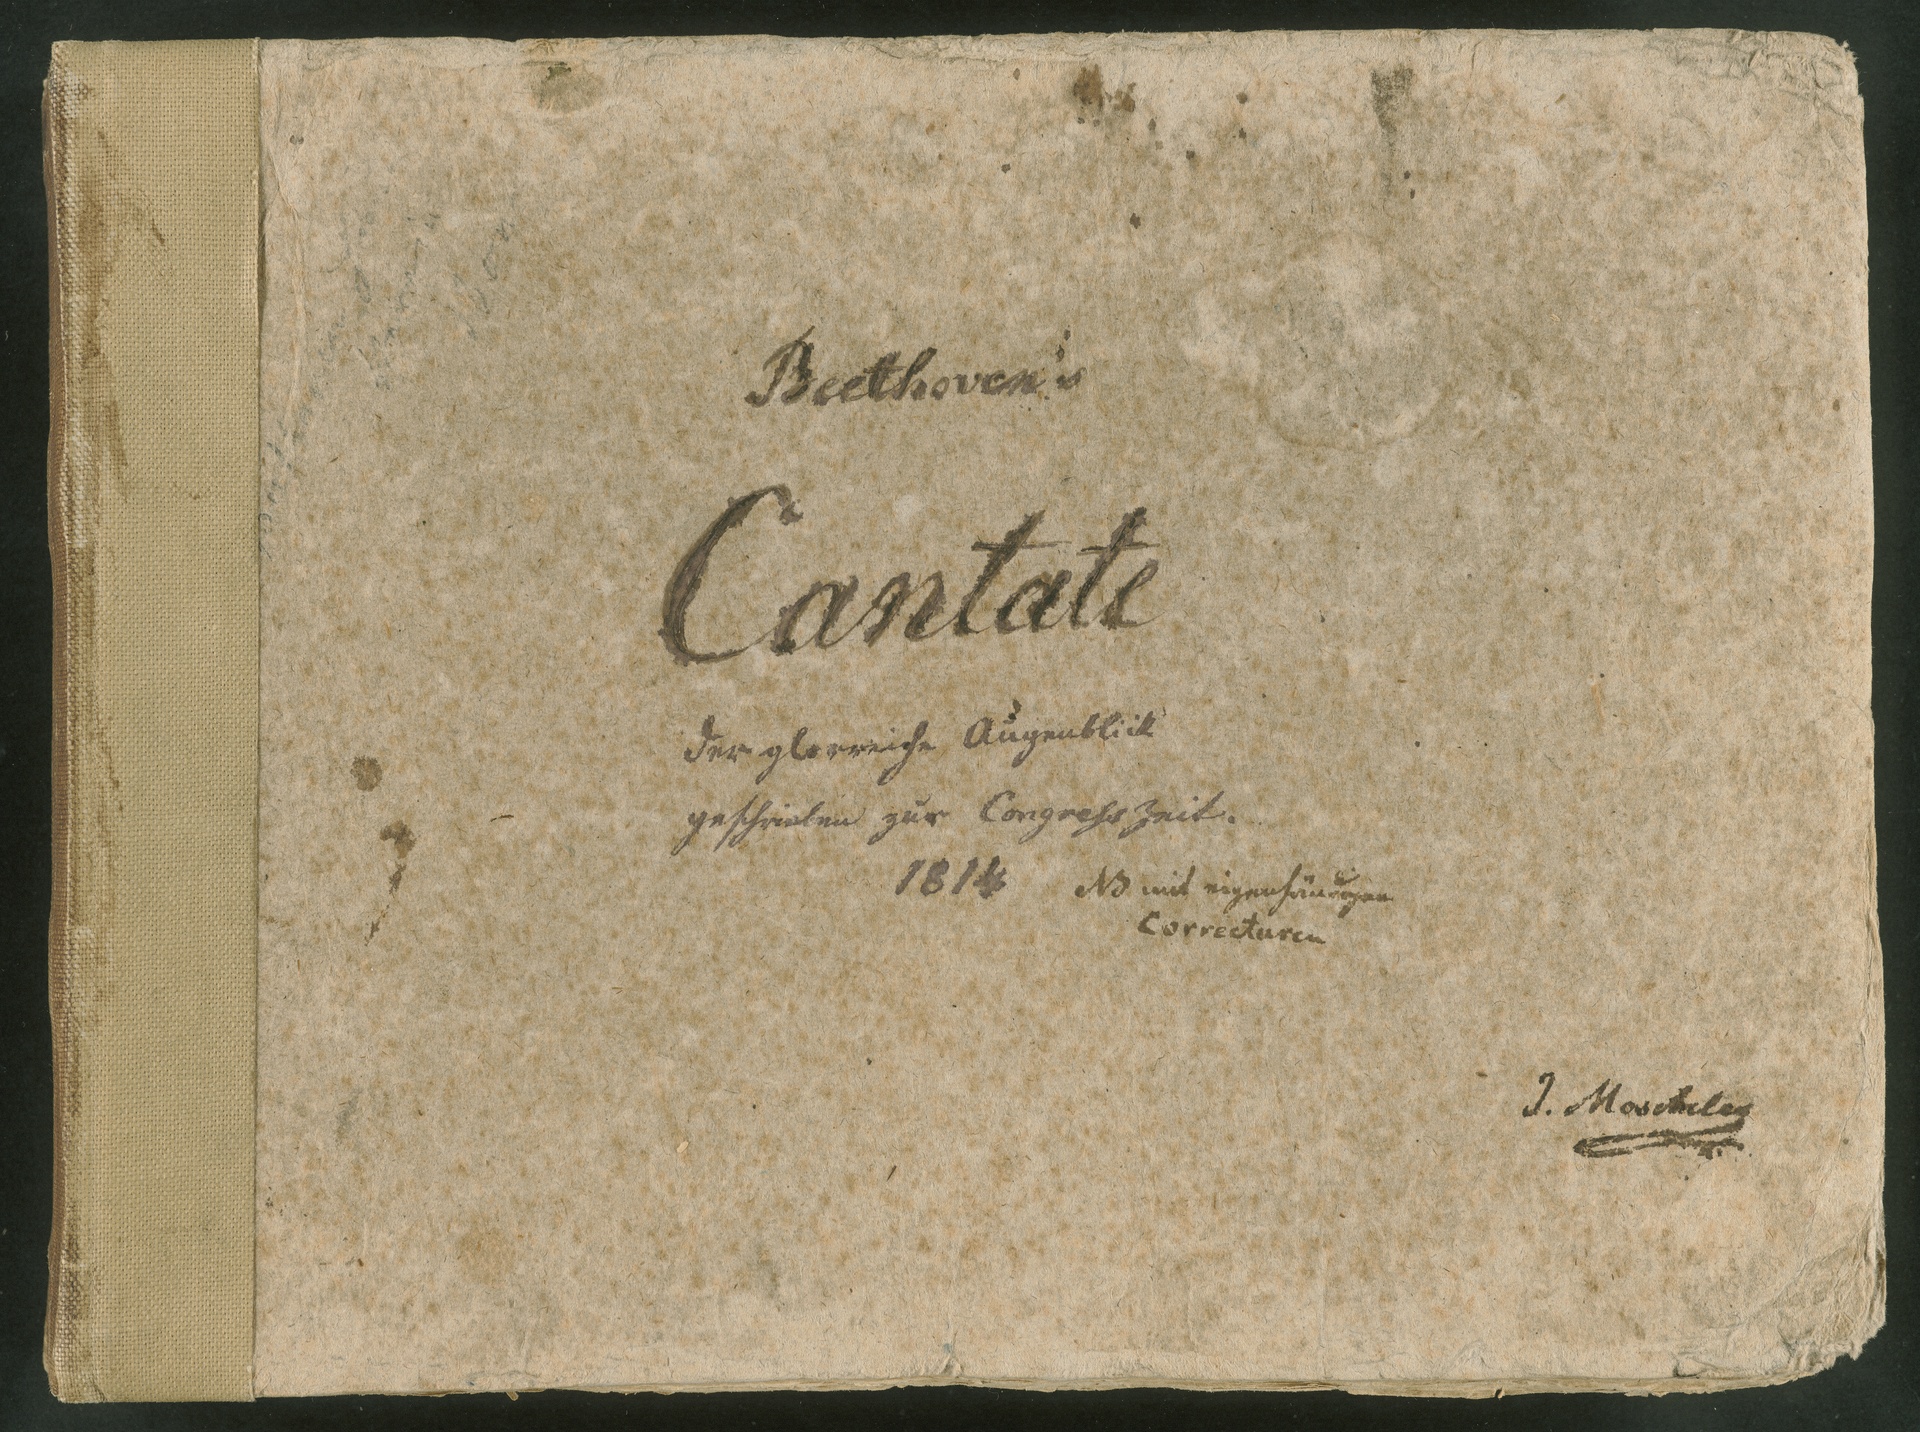 Beethoven's
Cantate
der glorreiche Augenblick
geschrieben zur Congresszeit.
1814 NB mit eigenhändigen
Correcturen
J. Moscheles